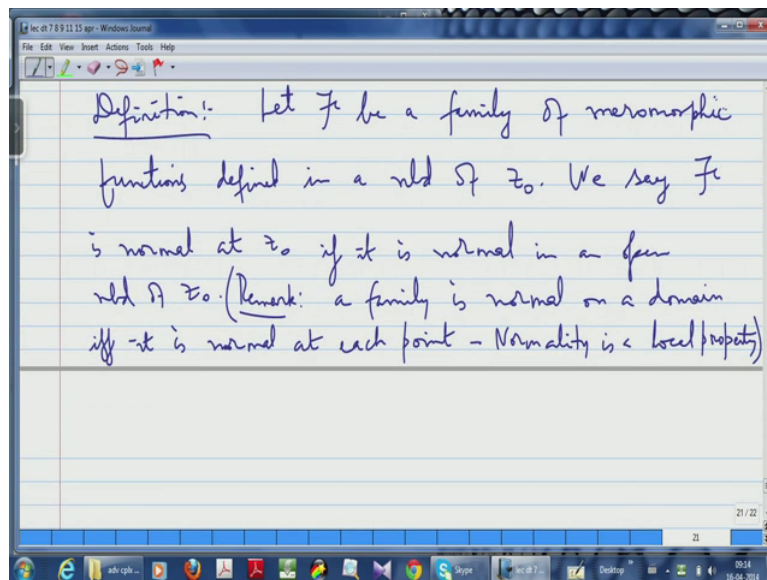 lec dt 7 8 9 11 15 apr - Windows Journal
File Edit View Insert Actions Tools Help
Definition:- Let ℱ be a family of meromorphic
functions defined in a nbd of z₀. We say ℱ
is normal at z₀ if it is normal in an open
nbd of z₀. (Remark: a family is normal on a domain
iff it is normal at each point – Normality is a local property)
21 / 22
21
adv cplx... Skype lec dt 7... Desktop 09:14
16-04-2014